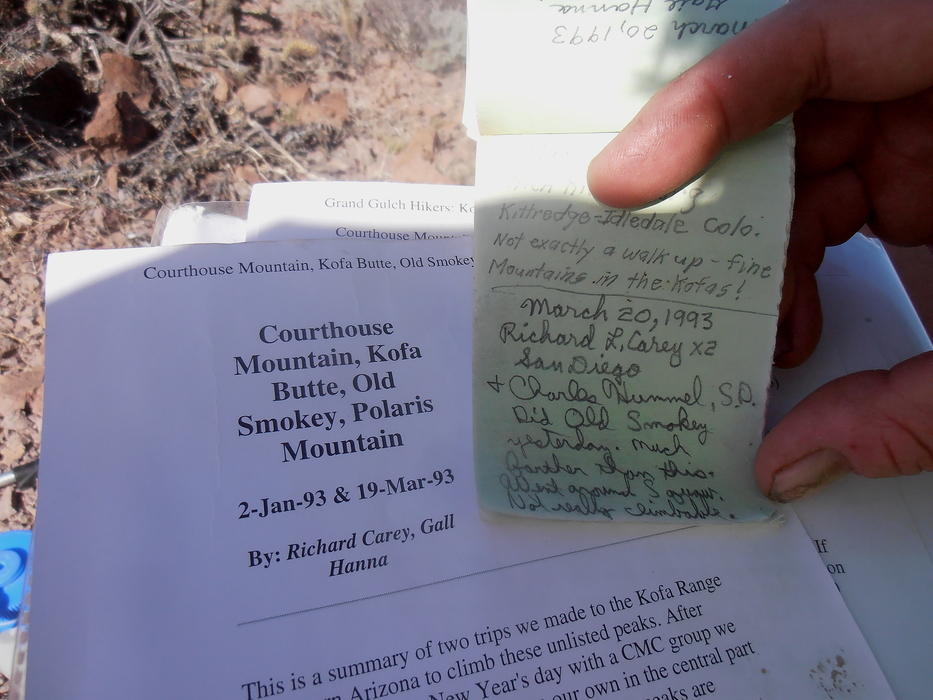 Gale Hanna
March 20, 1993
Kittredge-Idledale Colo.
Not exactly a walk up - fine
Mountains in the Kofas!
March 20, 1993
Richard L. Carey x2
San Diego
+ Charles Hummel, S.D.
Did Old Smokey
yesterday. Much
farther than this.
Went around
Not really climbable.
Grand Gulch Hikers: Ko
Courthouse Mount
Courthouse Mountain, Kofa Butte, Old Smokey
Courthouse
Mountain, Kofa
Butte, Old
Smokey, Polaris
Mountain
2-Jan-93 & 19-Mar-93
By: Richard Carey, Gall
Hanna
This is a summary of two trips we made to the Kofa Range
rn Arizona to climb these unlisted peaks. After
New Year's day with a CMC group we
our own in the central part
peaks are
If
on